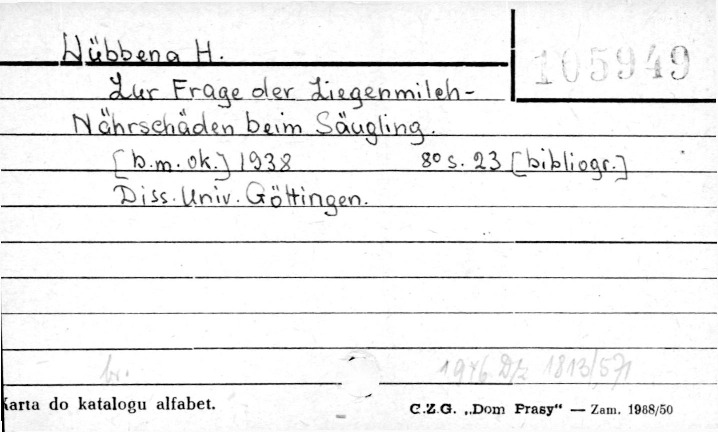 Wübbena H.
105949
Zur Frage der Ziegenmilch-
Nährschäden beim Säugling.
[b.m.ok.] 1938 8° s. 23 [bibliogr.]
Diss. Univ. Göttingen.
br. 1946 Dz 1813/571
Karta do katalogu alfabet.
C.Z.G. „Dom Prasy" — Zam. 1988/50